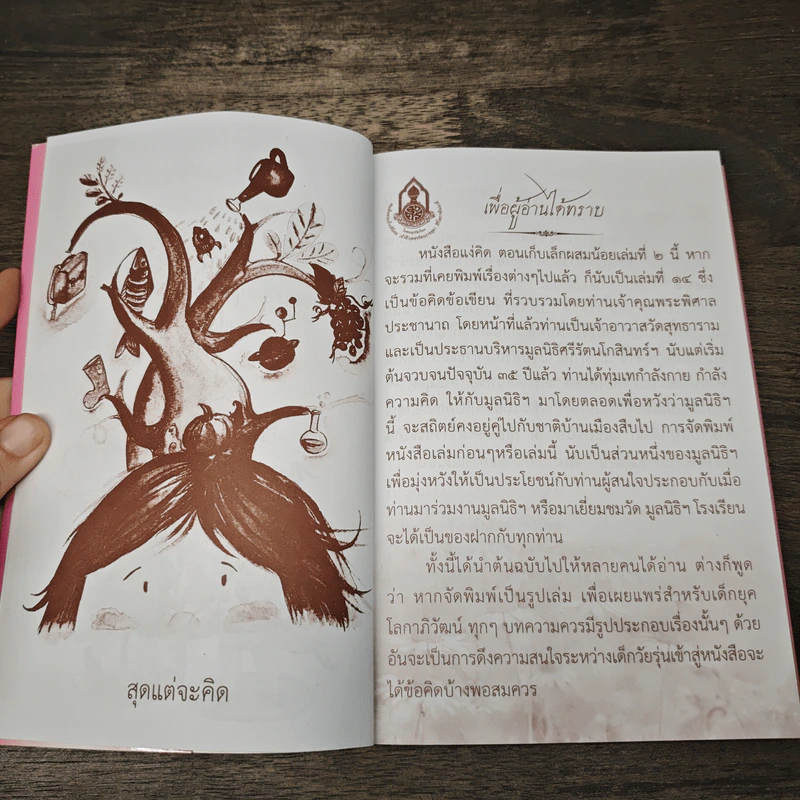 สุดแต่จะคิด
เพื่อผู้อ่านได้ทราบ
หนังสือแง่คิด ตอนเก็บเล็กผสมน้อยเล่มที่ ๒ นี้ หาก
จะรวมที่เคยพิมพ์เรื่องต่างๆไปแล้ว ก็นับเป็นเล่มที่ ๑๔ ซึ่ง
เป็นข้อคิดข้อเขียน ที่รวบรวมโดยท่านเจ้าคุณพระพิศาล
ประชานาถ โดยหน้าที่แล้วท่านเป็นเจ้าอาวาสวัดสุทธาราม
และเป็นประธานบริหารมูลนิธิศรีรัตนโกสินทร์ฯ นับแต่เริ่ม
ต้นจวบจนปัจจุบัน ๓๕ ปีแล้ว ท่านได้ทุ่มเทกำลังกาย กำลัง
ความคิด ให้กับมูลนิธิฯ มาโดยตลอดเพื่อหวังว่ามูลนิธิฯ
นี้ จะสถิตย์คงอยู่คู่ไปกับชาติบ้านเมืองสืบไป การจัดพิมพ์
หนังสือเล่มก่อนๆหรือเล่มนี้ นับเป็นส่วนหนึ่งของมูลนิธิฯ
เพื่อมุ่งหวังให้เป็นประโยชน์กับท่านผู้สนใจประกอบกับเมื่อ
ท่านมาร่วมงานมูลนิธิฯ หรือมาเยี่ยมชมวัด มูลนิธิฯ โรงเรียน
จะได้เป็นของฝากกับทุกท่าน
ทั้งนี้ได้นำต้นฉบับไปให้หลายคนได้อ่าน ต่างก็พูด
ว่า หากจัดพิมพ์เป็นรูปเล่ม เพื่อเผยแพร่สำหรับเด็กยุค
โลกาภิวัฒน์ ทุกๆ บทความควรมีรูปประกอบเรื่องนั้นๆ ด้วย
อันจะเป็นการดึงความสนใจระหว่างเด็กวัยรุ่นเข้าสู่หนังสือจะ
ได้ข้อคิดบ้างพอสมควร